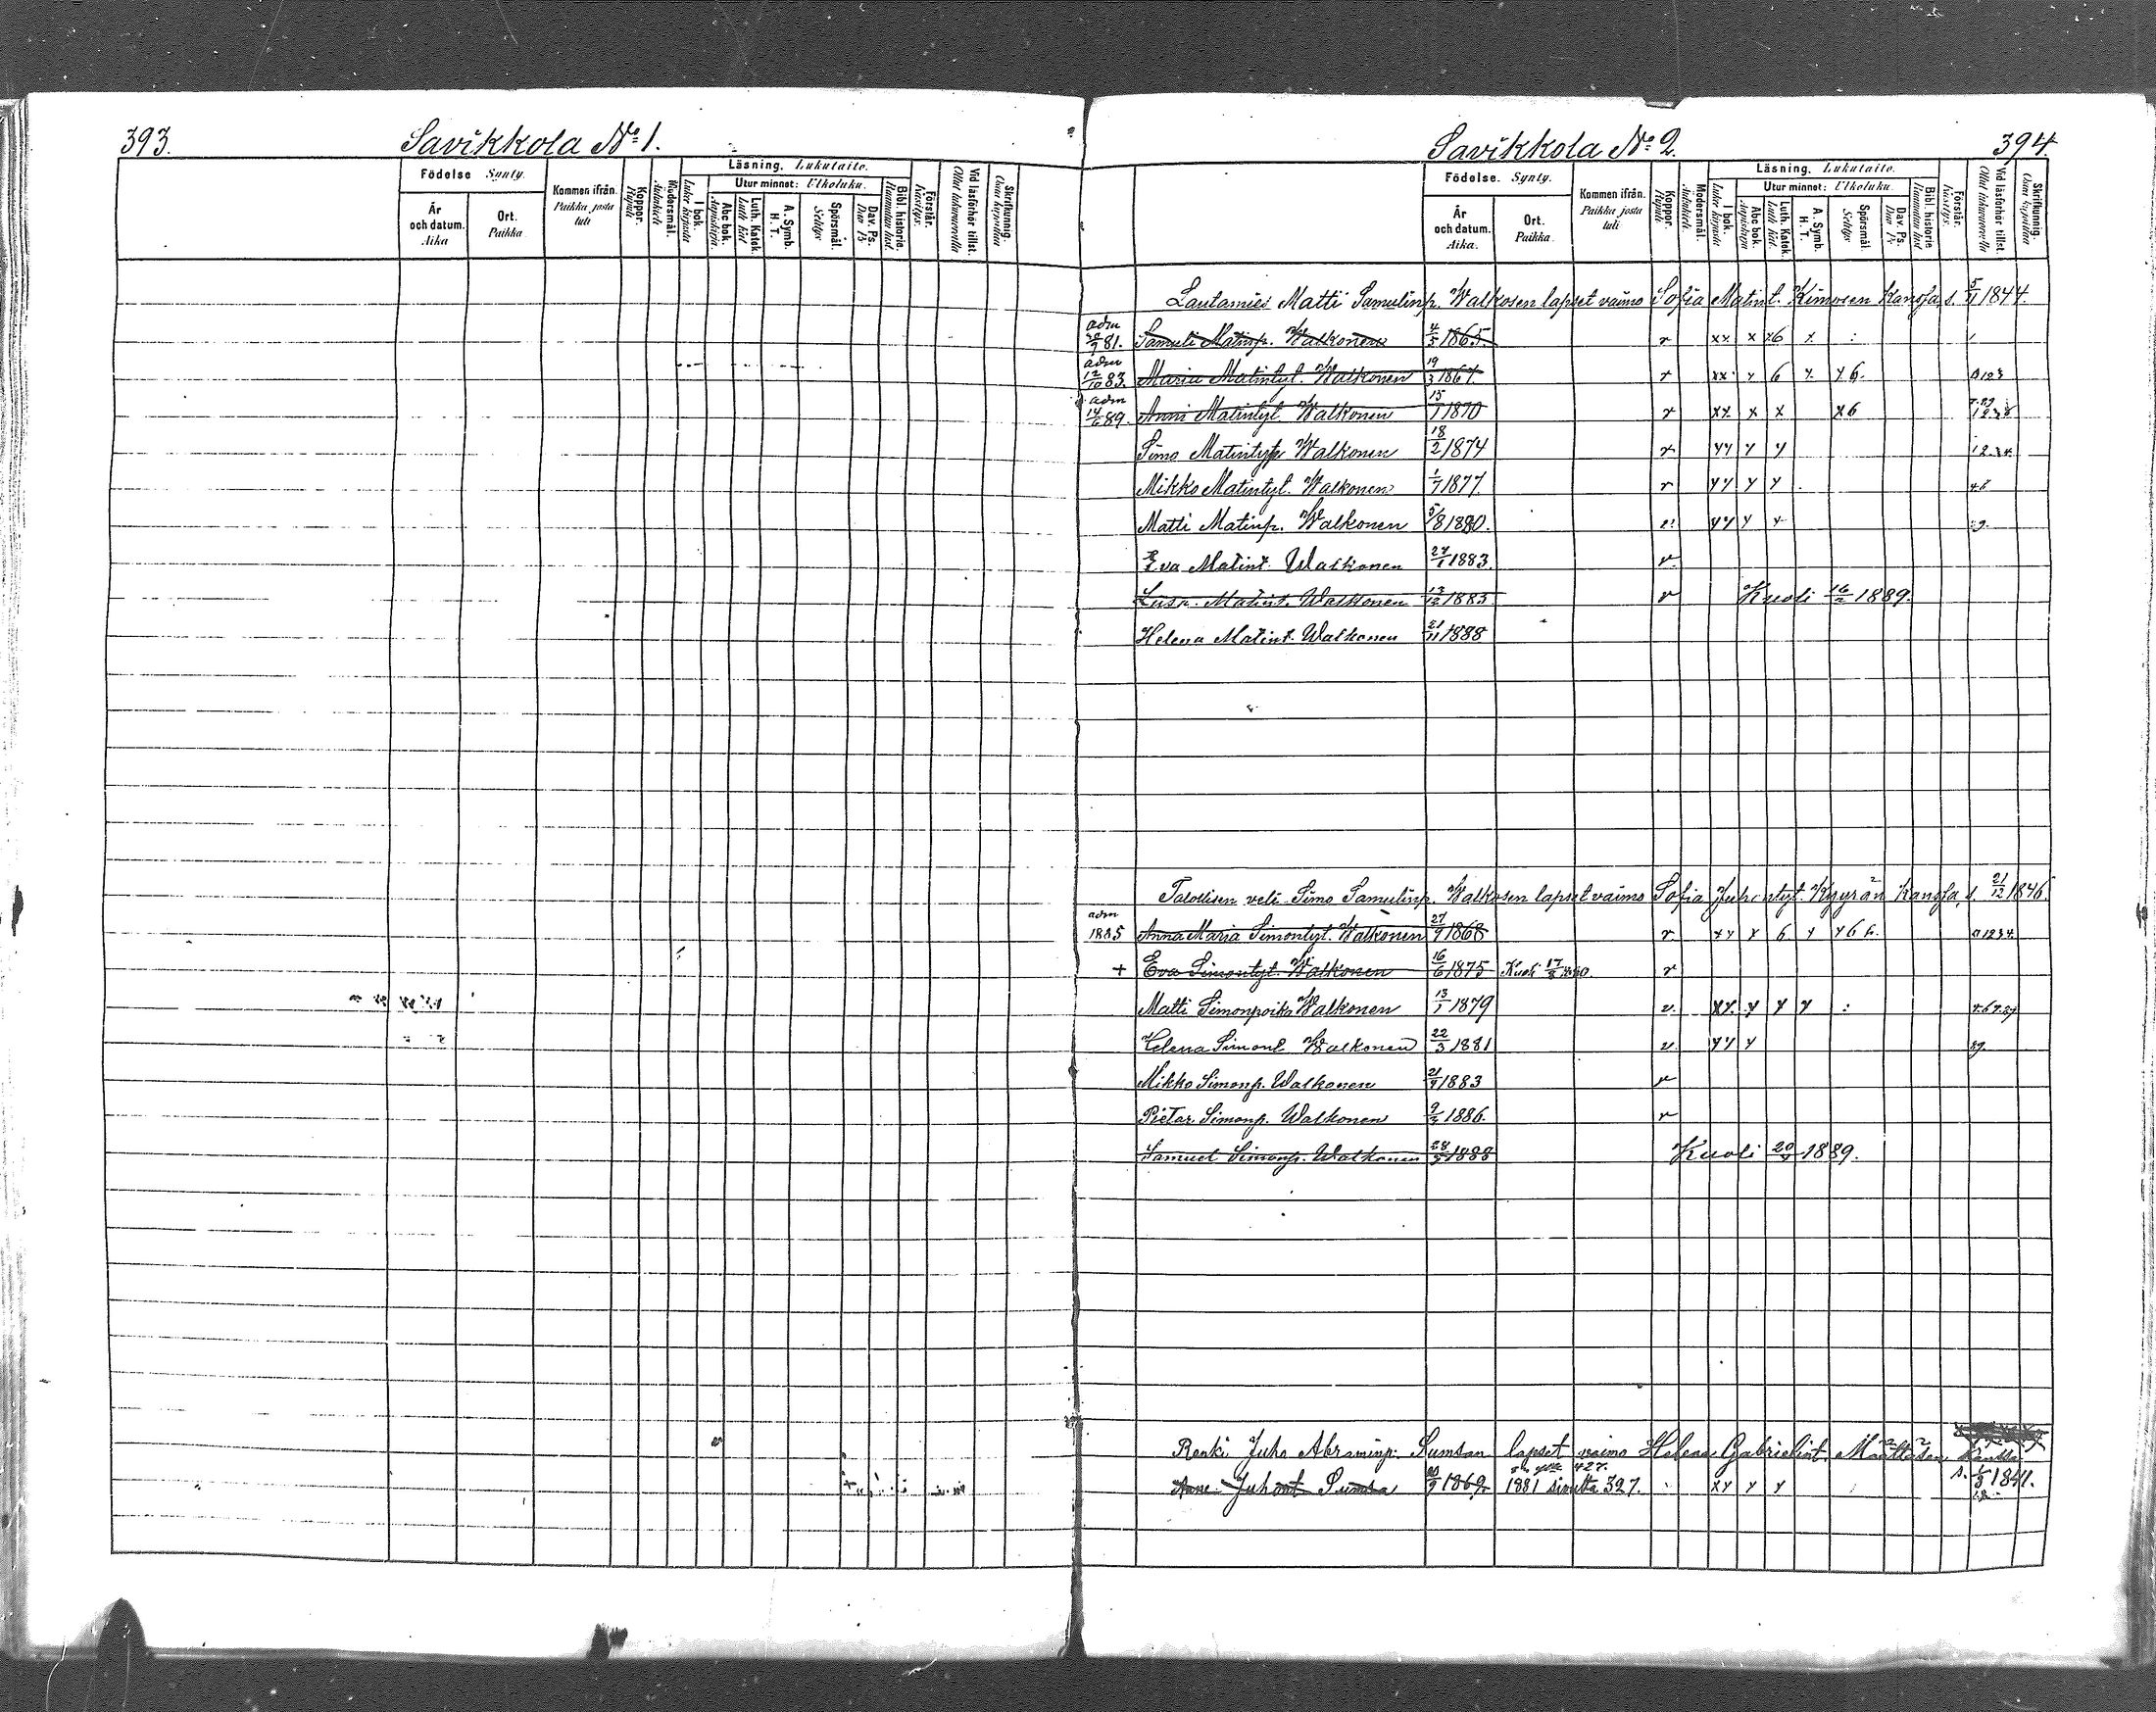 393.
Savikkola No 1.
Födelse Synty.
År och datum. Aika
Ort. Paikka
Kommen ifrån. Paikka josta tuli
Koppor. Rupuli
Modersmål.
Läsning. Lukutaito.
I bok.
Utur minnet: Ulkoluku.
Abc bok.
Luth. Katek.
A. Symb. H. T.
Spörsmål.
Dav. Ps.
Bibl. historia.
Förstår. Käsitys.
Vid läsförhör tillst.
Skrifkunnig
Savikkola No 2.
394.
Födelse. Synty.
År och datum. Aika.
Ort. Paikka.
Kommen ifrån. Paikka josta tuli
Koppor. Rupuli
Modersmål.
Läsning. Lukutaito.
I bok.
Utur minnet: Ulkoluku.
Abc bok.
Luth. Katek.
A. Symb. H. T.
Spörsmål.
Dav. Ps.
Bibl. historia
Förstår. Käsitys.
Vid läsförhör tillst.
Skrifkunnig.
Lautamies Matti Samulinp. Walkosen lapset vaimo Sofia Matint. Kimosen kanssa, s. 5/1 1844.
adm 81. Samuli Matinp. Walkonen 4/5 1865. r xx x x6 x
adm 12/10 83. Maria Matintyt. Walkonen 19/3 1867. r xx x 6 x x6
adm 14/6 89. Anni Matintyt. Walkonen 15/1 1870 r xx x x x6
Simo Matintytp Walkonen 18/2 1874 r xx x x
Mikko Matintyt. Walkonen 1/7 1877. r xx x x
Matti Matinp. Walkonen 5/8 1880. xx x x
Eva Matint. Walkonen 27/1 1883. v
Matint. Walkonen 13/12 1885 v Kuoli 16/2 1889.
Helena Matint. Walkonen 21/11 1888
Talollisen veli Simo Samulinp. Walkosen lapset vaimo Sofia Juhontyt. Kyyrön kanssa, s. 21/12 1846.
adm 1885 Anna Maria Simontyt. Walkonen 27/9 1868 r xx x 6 x x6 1234.
+ Eva Simontyt. Walkonen 16/6 1875 Kuoli r
Matti Simonpoika Walkonen 13/1 1879 v. xx x x x
Helena Simont Walkonen 22/3 1881 v. xx x
Mikko Simonp. Walkonen 21/9 1883 v
Pietar Simonp. Walkonen 9/2 1886. v
Samuel Simonp. Walkonen 28/5 1888 Kuoli 1889.
Renki Juho Abraminp. Sumsan lapset vaimo Helena Gabrielint. Määttäsen kanssa s. 1841.
Anne Juhont Sumsa 1869. 1881 sivulta 327. xx x x